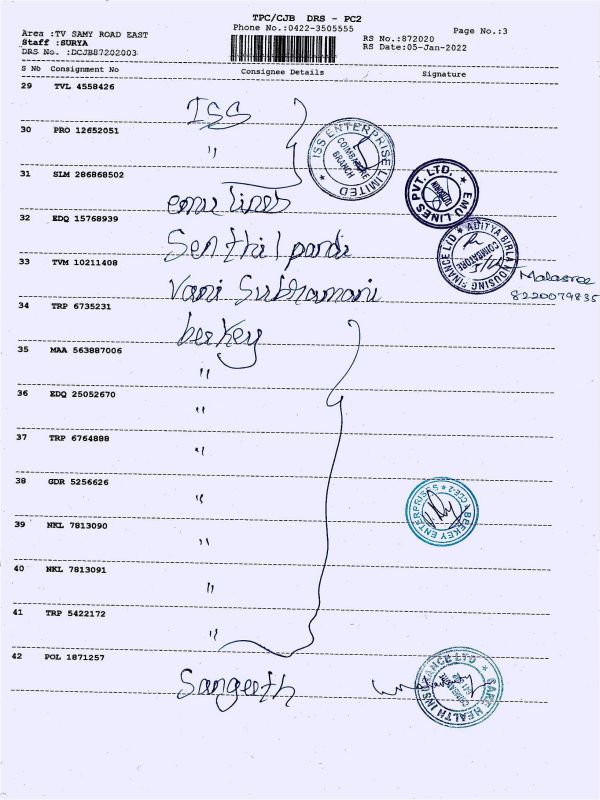 TPC/CJB DRS - PC2
Phone No.:0422-3505555
Area :TV SAMY ROAD EAST
Staff :SURYA
DRS No. :DCJB87202003
RS No.:872020
RS Date:05-Jan-2022
Page No.:3
S No Consignment No Consignee Details Signature
29 TVL 4558426 ISS
30 PRO 12652051 "
ISS ENTERPRISE LIMITED
COIMBATORE BRANCH
31 SLM 286868502 emu lines
EMU LINES PVT. LTD.
32 EDQ 15768939 Senthil pandi
ADITYA BIRLA HOUSING FINANCE LTD
COIMBATORE
33 TVM 10211408 Vani Subramani
8220079835
34 TRP 6735231 beekey
35 MAA 563887006 "
36 EDQ 25052670 "
37 TRP 6764888 "
38 GDR 5256626 "
BEEKEY ENTERPRISES
39 NKL 7813090 "
40 NKL 7813091 "
41 TRP 5422172 "
42 POL 1871257 Sangeeth
HEALTH INSURANCE LTD